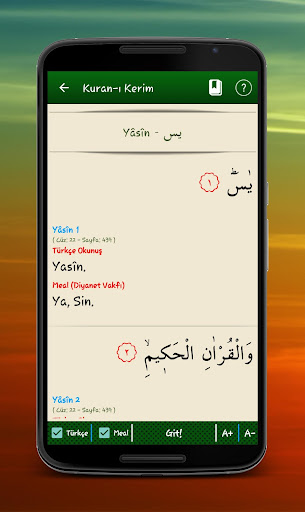 Kuran-ı Kerim
?
Yâsîn - يس
يٰسٓ ۚ ١
Yâsîn 1
( Cüz: 22 - Sayfa: 439 )
Türkçe Okunuş
Yasîn.
Meal (Diyanet Vakfı)
Ya, Sin.
وَالْقُرْاٰنِ الْحَك۪يمِۙ ٢
Yâsîn 2
( Cüz: 22 - Sayfa: 439 )
Türkçe
Meal
Git!
A+
A-